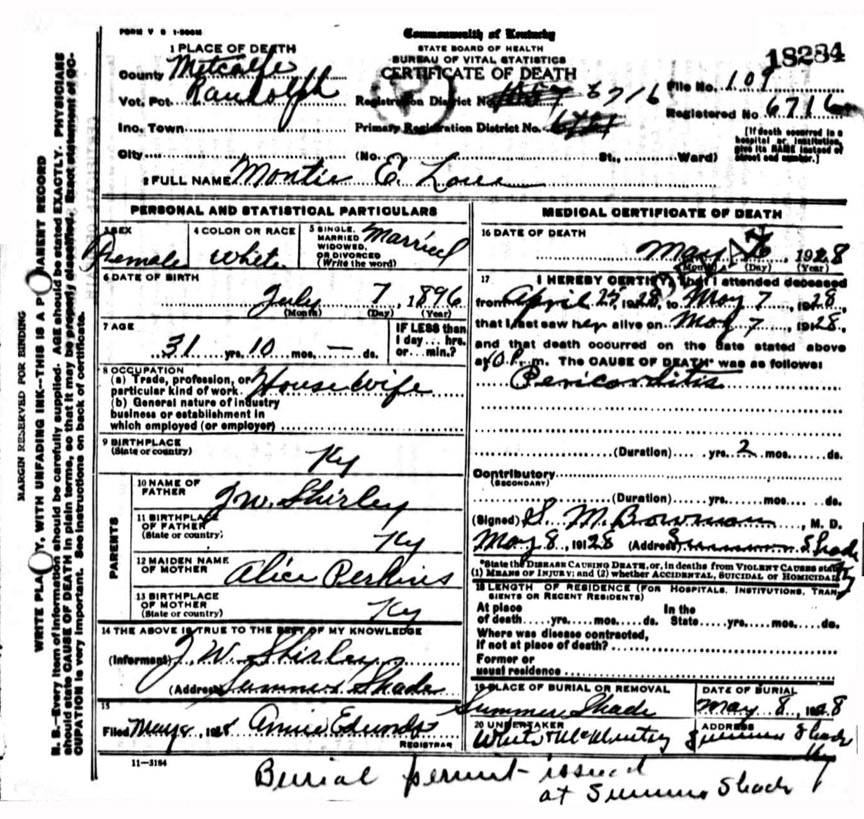 FORM V S 1-500M
Commonwealth of Kentucky
STATE BOARD OF HEALTH
BUREAU OF VITAL STATISTICS
CERTIFICATE OF DEATH
18284
1 PLACE OF DEATH
County Metcalfe
Vot. Pct. Randolph
Inc. Town
City (No. St., Ward)
Registration District No. 6716
Primary Registration District No.
File No. 109
Registered No. 6716
[If death occurred in a hospital or institution, give its NAME instead of street and number.]
2 FULL NAME Montie E. Lowe
PERSONAL AND STATISTICAL PARTICULARS
3 SEX Female
4 COLOR OR RACE White
5 SINGLE, MARRIED WIDOWED, OR DIVORCED (Write the word) Married
6 DATE OF BIRTH
July 7, 1896
(Month) (Day) (Year)
7 AGE
31 yrs. 10 mos. — ds.
IF LESS than 1 day... hrs. or... min.?
8 OCCUPATION
(a) Trade, profession, or particular kind of work. House wife
(b) General nature of industry business or establishment in which employed (or employer)
9 BIRTHPLACE
(State or country) Ky
PARENTS
10 NAME OF FATHER J. W. Shirley
11 BIRTHPLACE OF FATHER (State or country) Ky
12 MAIDEN NAME OF MOTHER Alice Perkins
13 BIRTHPLACE OF MOTHER (State or country) Ky
14 THE ABOVE IS TRUE TO THE BEST OF MY KNOWLEDGE
(Informant) J. W. Shirley
(Address) Summer Shade
15
Filed May 8, 1928 Annie Edwards
REGISTRAR
11-3184
MEDICAL CERTIFICATE OF DEATH
16 DATE OF DEATH
May 1928
(Month) (Day) (Year)
17 I HEREBY CERTIFY, That I attended deceased
from April 25, 1928, to May 7, 1928,
that I last saw her alive on May 7, 1928,
and that death occurred on the date stated above
at 10 P. m. The CAUSE OF DEATH* was as follows:
Pericarditis
(Duration) yrs. 2 mos. ds.
Contributory
(SECONDARY)
(Duration) yrs. mos. ds.
(Signed) S. M. Bowman, M. D.
May 8, 1928 (Address) Summer Shade
*State the DISEASE CAUSING DEATH, or, in deaths from VIOLENT CAUSES state
(1) MEANS OF INJURY; and (2) whether ACCIDENTAL, SUICIDAL OR HOMICIDAL
18 LENGTH OF RESIDENCE (FOR HOSPITALS, INSTITUTIONS, TRANSIENTS OR RECENT RESIDENTS)
At place of death yrs. mos. ds. In the State yrs. mos. ds.
Where was disease contracted, If not at place of death?
Former or usual residence
19 PLACE OF BURIAL OR REMOVAL
Summer Shade
DATE OF BURIAL
May 8, 1928
20 UNDERTAKER
ADDRESS
Summer Shade Ky
Burial permit issued
at Summer Shade
MARGIN RESERVED FOR BINDING
WRITE PLAINLY, WITH UNFADING INK—THIS IS A PERMANENT RECORD
N. B.—Every item of information should be carefully supplied. AGE should be stated EXACTLY. PHYSICIANS
should state CAUSE OF DEATH in plain terms, so that it may be properly classified. Exact statement of OC-
CUPATION is very important. See instructions on back of certificate.